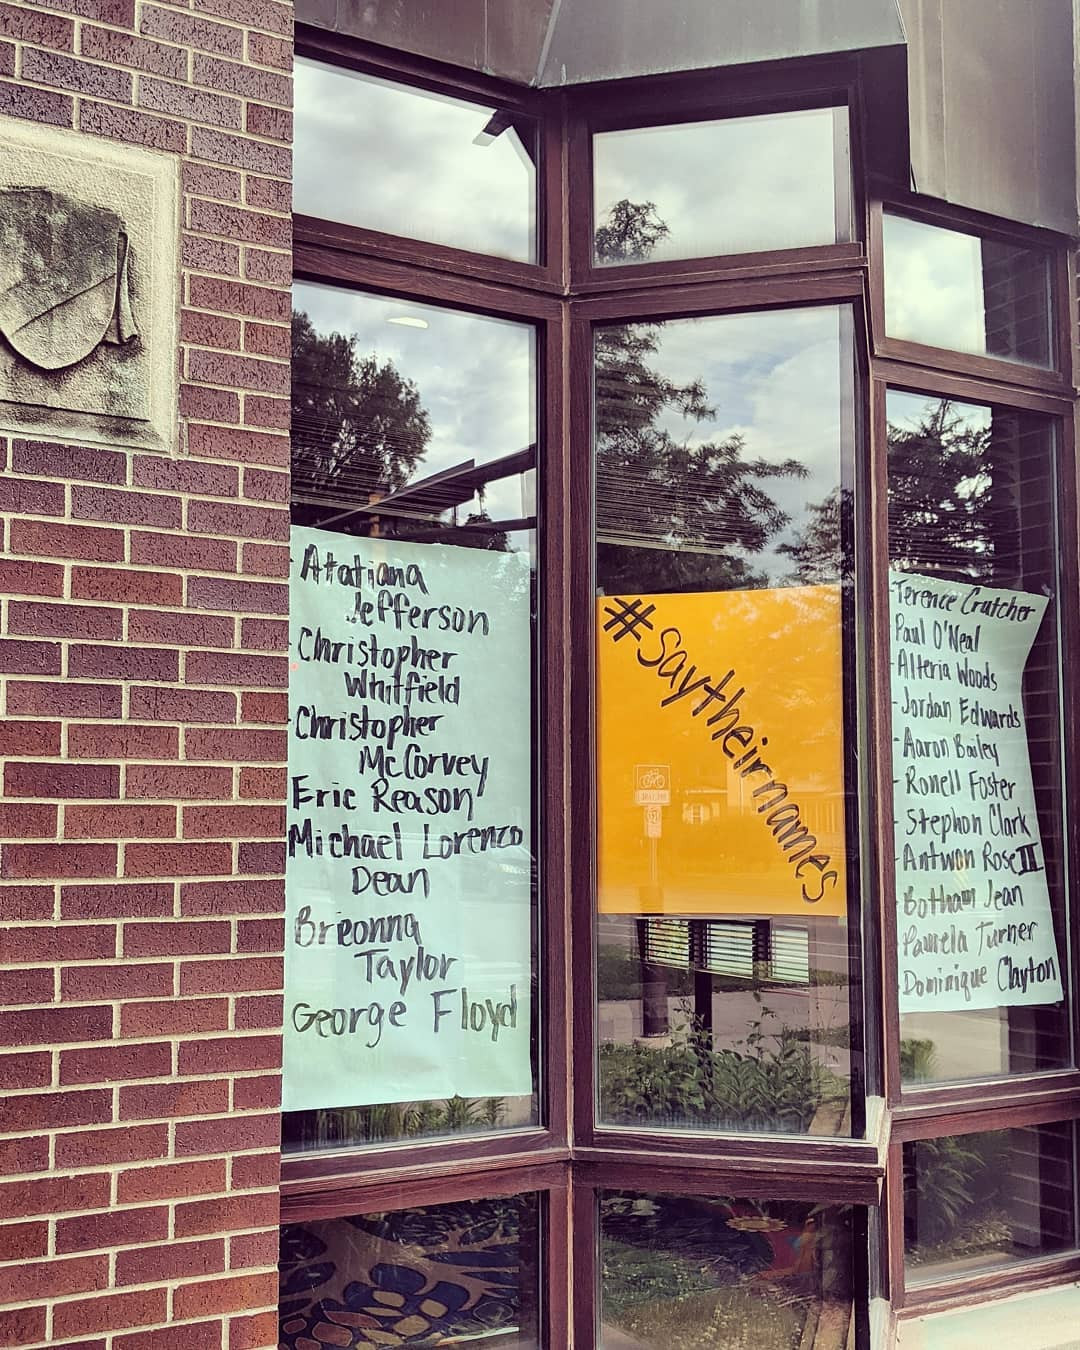 - Atatiana
Jefferson
- Christopher
Whitfield
- Christopher
McCorvey
Eric Reason
Michael Lorenzo
Dean
Breonna
Taylor
George Floyd
#saytheirnames
- Terence Crutcher
Paul O'Neal
- Alteria Woods
- Jordan Edwards
- Aaron Bailey
- Ronell Foster
- Stephon Clark
- Antwon Rose II
- Botham Jean
- Pamela Turner
- Dominique Clayton